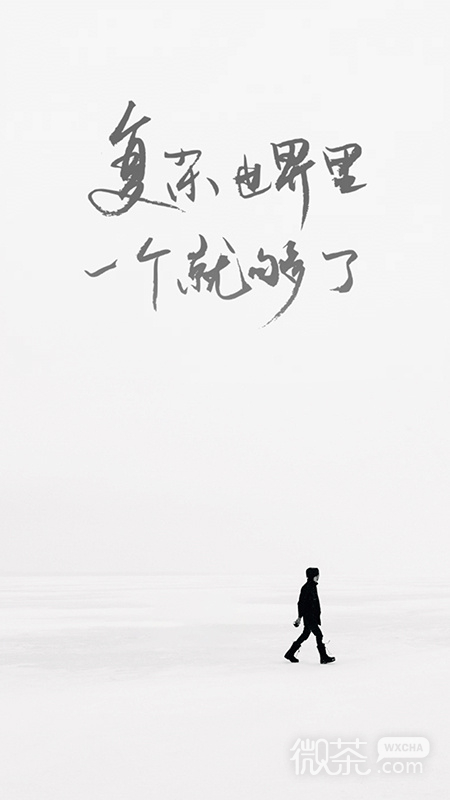 复杂世界里
一个就够了
微茶
WXCHA
.com